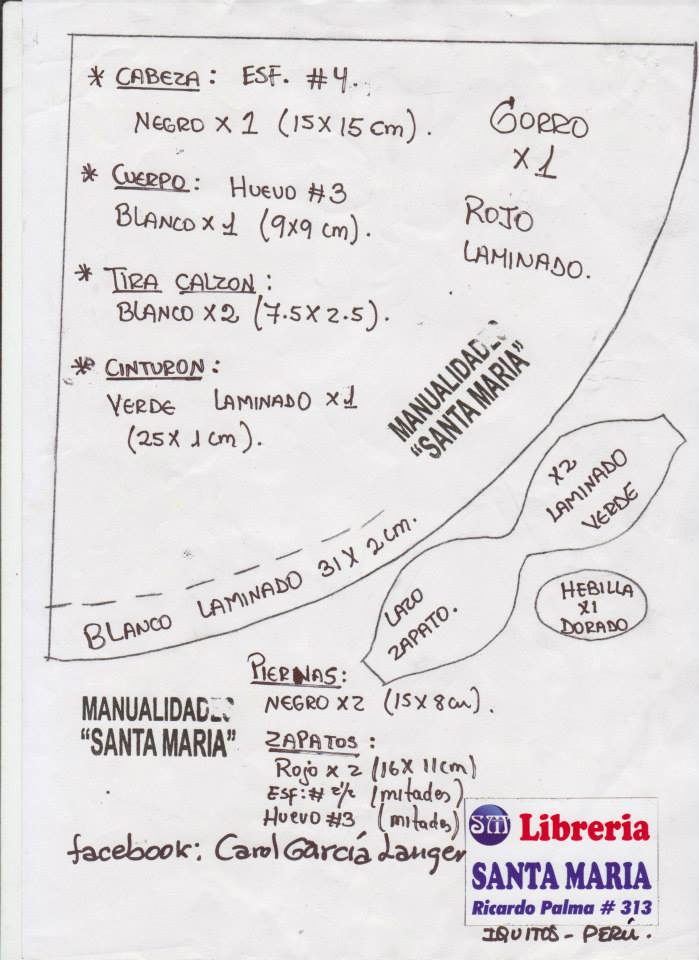 * CABEZA: ESF. #4.
NEGRO X 1 (15X15 cm).
* CUERPO: HUEVO #3
BLANCO X 1 (9X9 cm).
* TIRA CALZON:
BLANCO X2 (7.5X2.5).
* CINTURON:
VERDE LAMINADO X1
(25X1cm).
GORRO
X1
ROJO
LAMINADO.
MANUALIDADES
"SANTA MARIA"
BLANCO LAMINADO 31X2cm.
X2
LAMINADO
VERDE
LAZO
ZAPATO.
HEBILLA
X1
DORADO
PIERNAS:
NEGRO X2 (15X8cm).
MANUALIDADES
"SANTA MARIA"
ZAPATOS:
Rojo X 2 (16X11cm)
ESF:# (mitades)
HUEVO #3 (mitades)
facebook: Carol García Langer
SM Libreria
SANTA MARIA
Ricardo Palma # 313
IQUITOS - PERÚ.